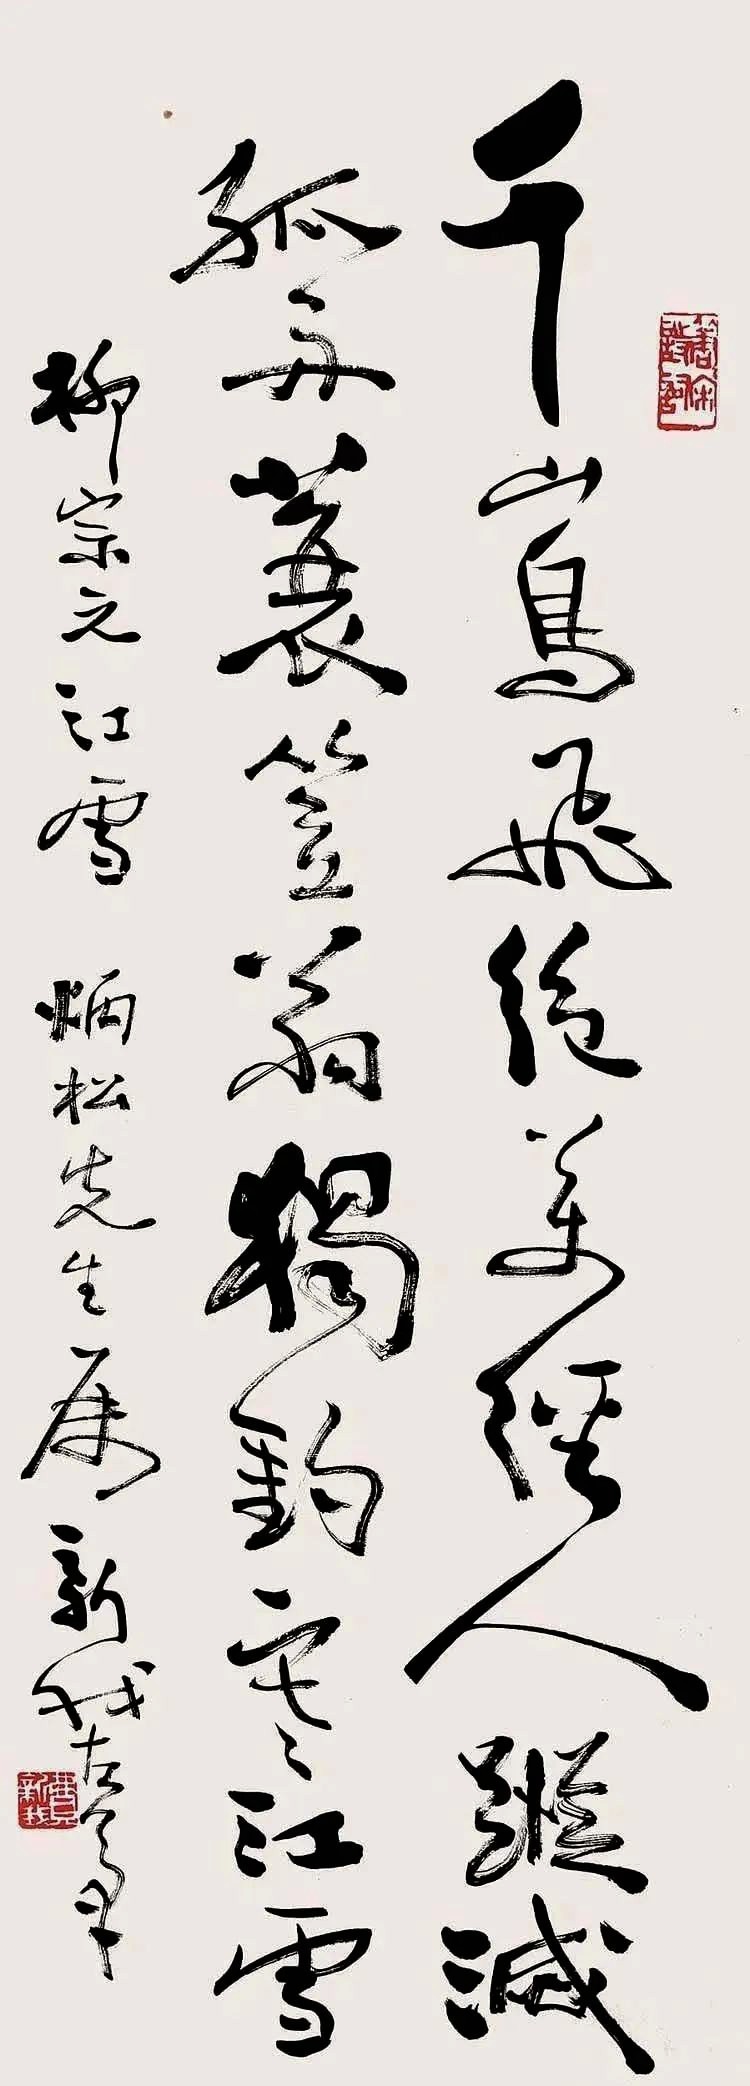 千山鳥飛絕萬徑人蹤滅
孤舟蓑笠翁獨釣寒江雪
柳宗元江雪 炳松先生属 新我左筆